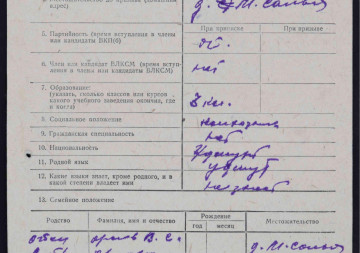 адрес)
д. М.
5. Партийность (время вступления в члены
или кандидаты ВКП(б)
При приписке При призыве
нет
6. Член или кандидат ВЛКСМ (время вступ-
ления в члены или кандидаты ВЛКСМ)
нет
7. Образование:
(указать, сколько классов или курсов
какого учебного заведения окончил, где
и когда)
3 кл.
8. Социальное положение
колхозник
9. Гражданская специальность
нет
10. Национальность
Удмурт
11. Родной язык
удмурт
12. Какие языки знает, кроме родного, и в
какой степени владеет ими
не знает
13. Семейное положение
Родство Фамилия, имя и отчество Рождение Местожительство
год месяц
отец В. С. д. М.